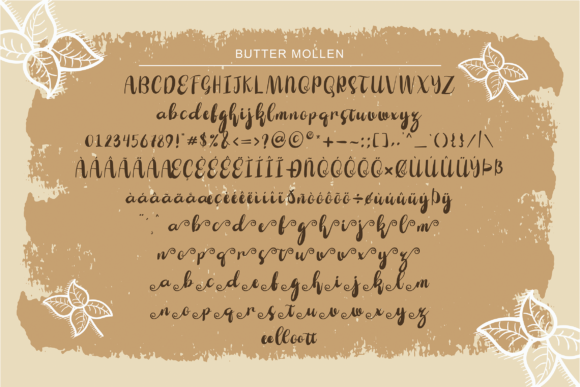 BUTTER MOLLEN
ABCDEFGHIJKLMNOPQRSTUVWXYZ
abcdefghijklmnopqrstuvwxyz
0123456789!"#$%&<=>?@©®*+~-:;[],."^_`(){}/|\
ÀÁÂÃÄÅÆÇÈÉÊËÌÍÎÏÐÑÒÓÔÕÖ×ØÙÚÛÜÝÞß
àáâãäåæçèéêëìíîïðñòóôõö÷øùúûüýþÿ
a b c d e f g h i j k l m
n o p q r s t u v w x y z
a b c d e f g h i j k l m
n o p q r s t u v w x y z
eelloott